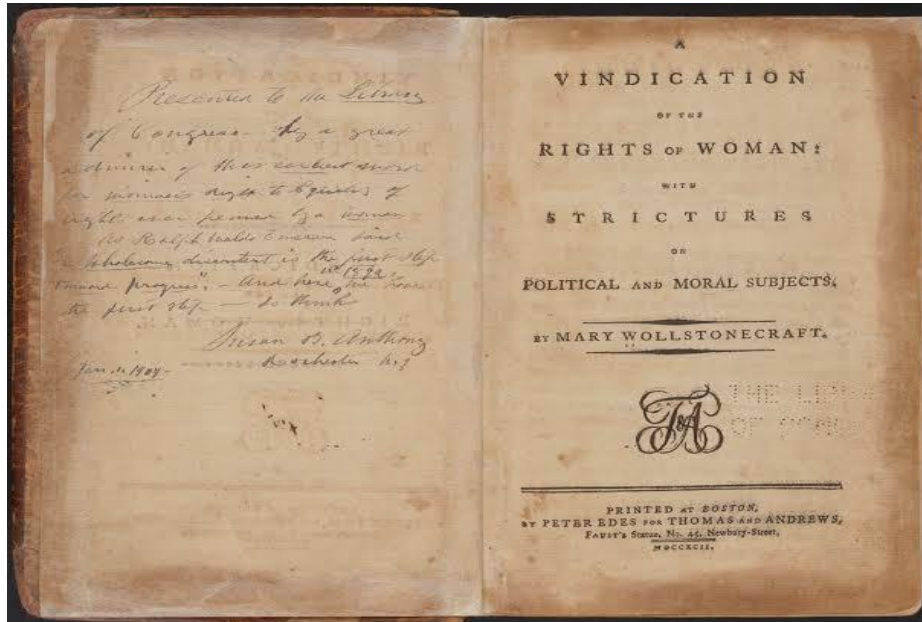 Presented to the Library
of Congress by a great
admirer of this earliest work
for woman's right to Equality of
rights ever penned by a woman
As Ralph Waldo Emerson said
"A wholesome discontent is the first step
toward progress". - And here, in 1792, we have
the first step - so thinks
Susan B. Anthony
Rochester N.Y
Jan. 1, 1904 -
A
VINDICATION
OF THE
RIGHTS OF WOMAN:
WITH
STRICTURES
ON
POLITICAL AND MORAL SUBJECTS.
BY MARY WOLLSTONECRAFT.
T&A
THE LIBR
OF CONG
PRINTED AT BOSTON,
BY PETER EDES FOR THOMAS AND ANDREWS,
FAUST'S Statue, No. 45, Newbury-Street,
MDCCXCII.